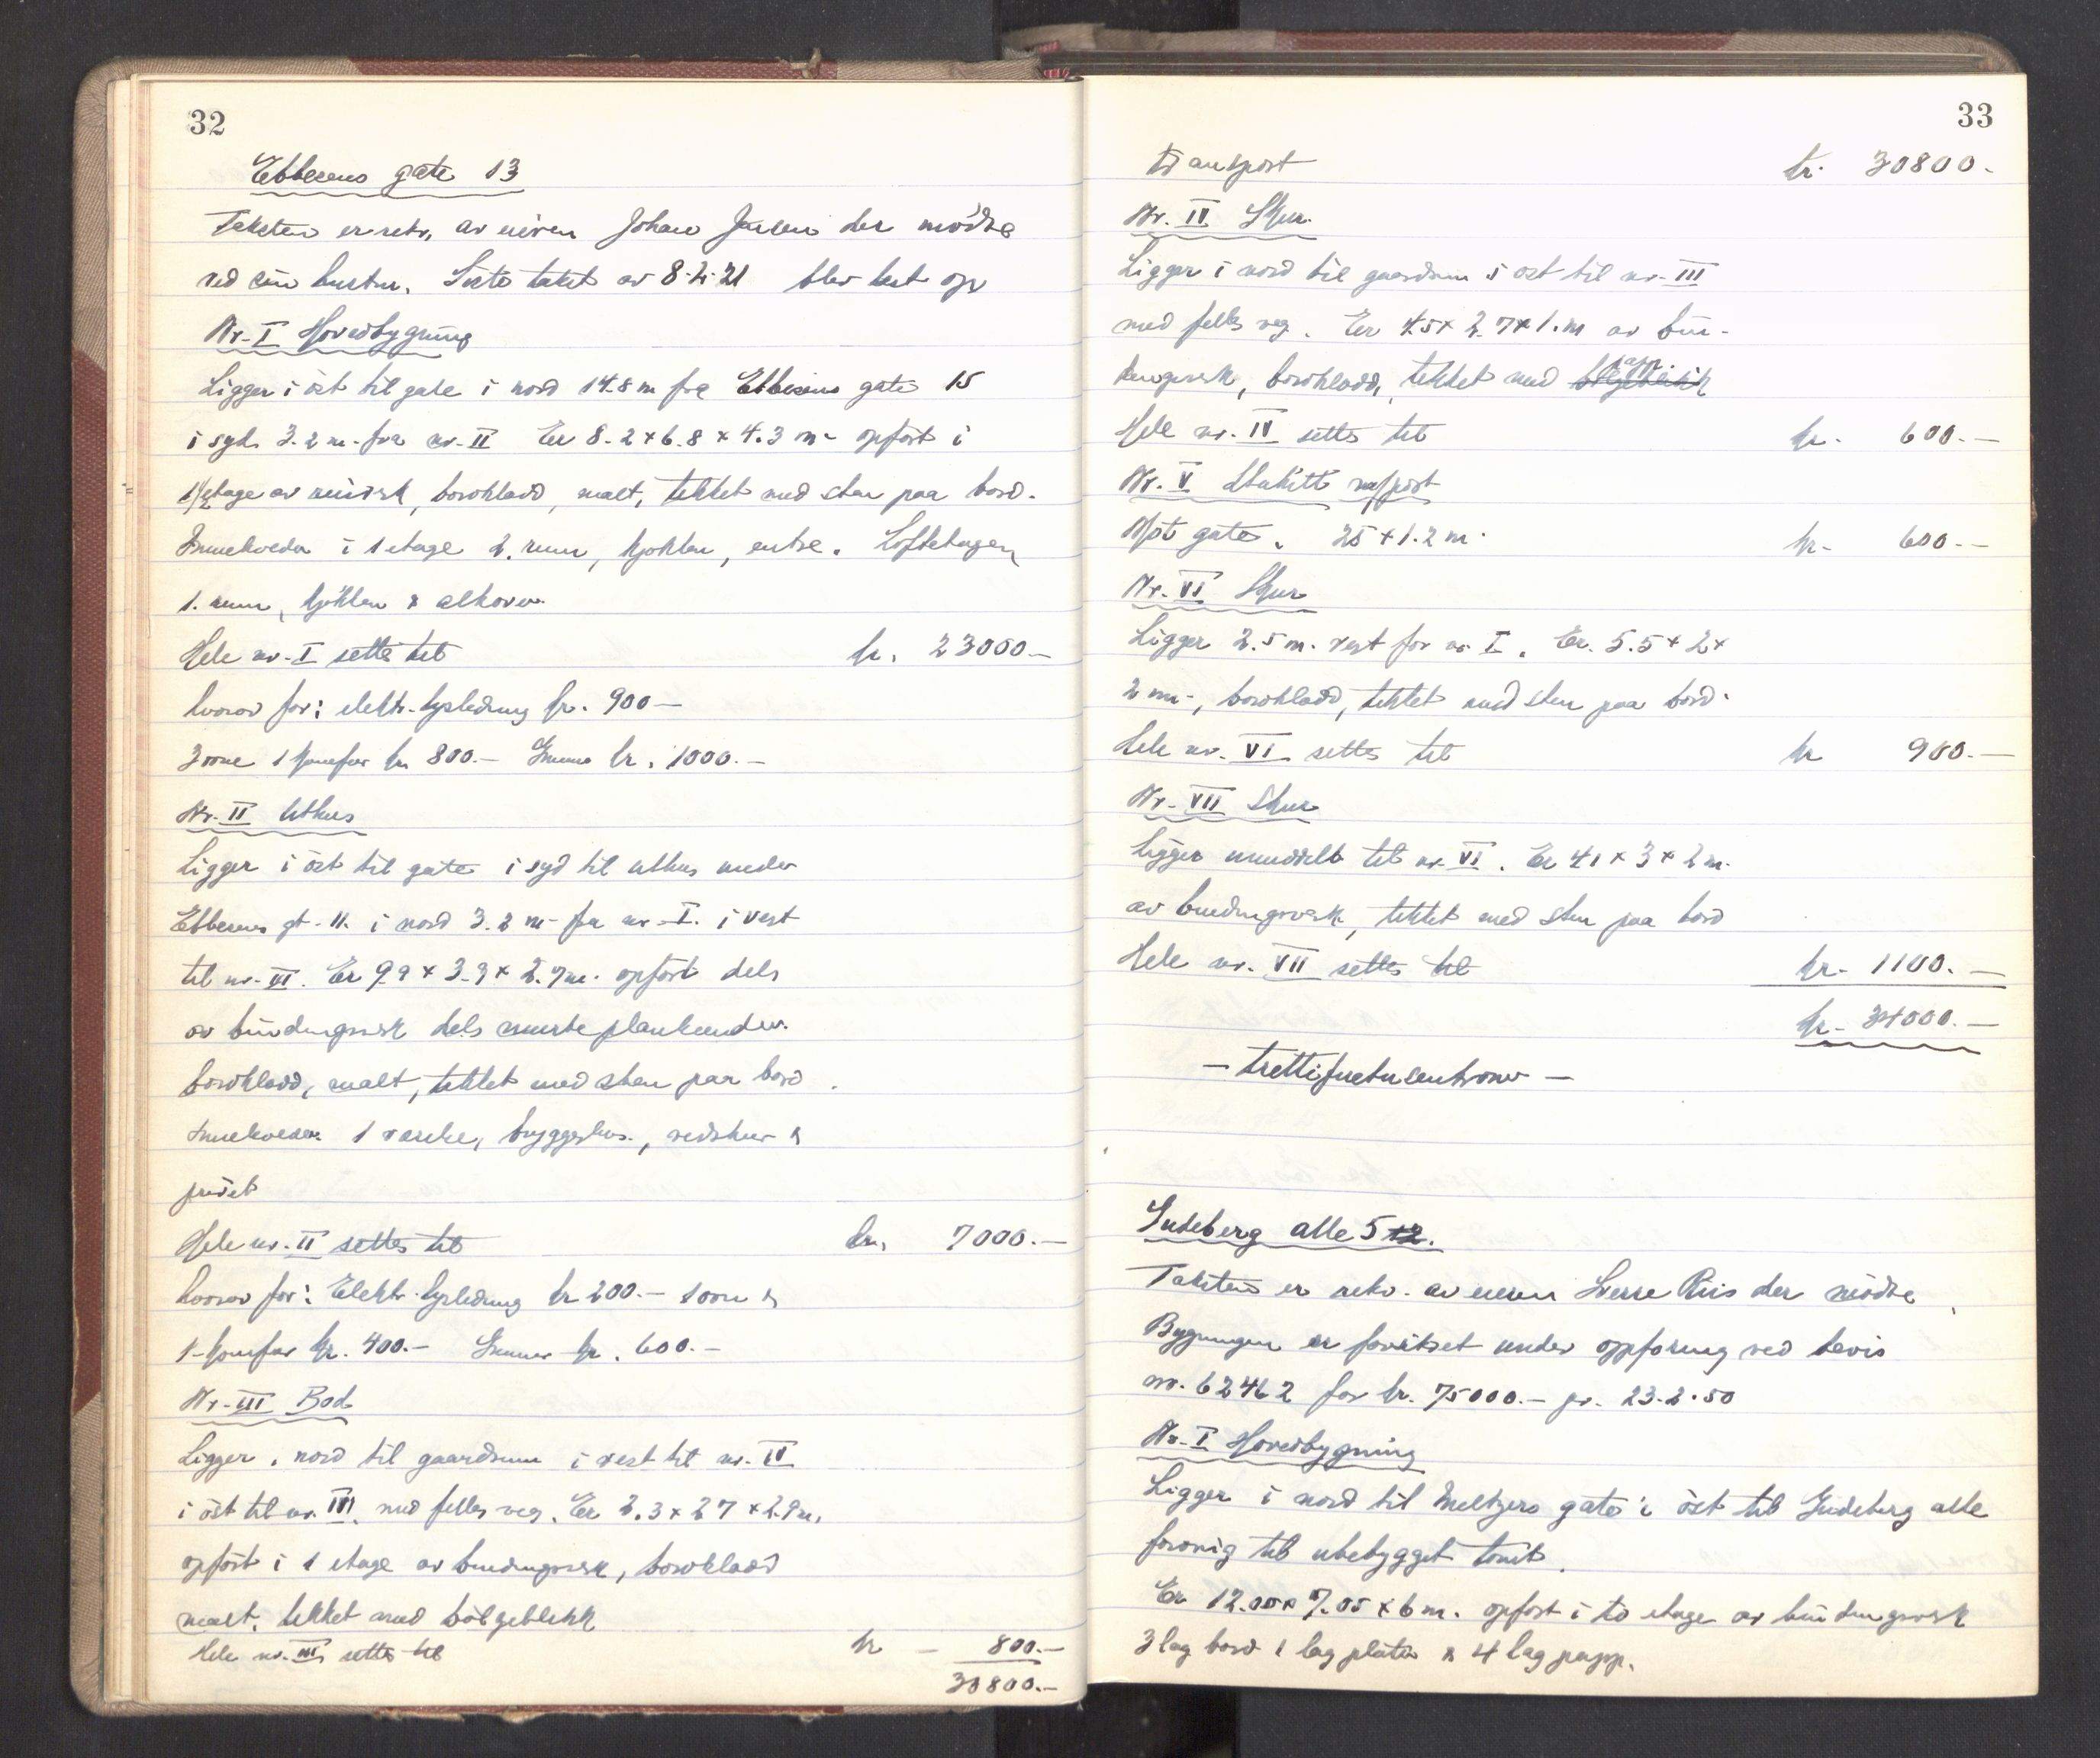 32
Ebbesens gate 13
Taksten er rekv. av eieren Johan Jensen der mødte
ved sin hustru. Siste takst av 8-4-21 blev lest op
Nr. I Hovedbygning
Ligger i øst til gate i nord 14.8 m fra Ebbesens gate 15
i syd 3.2 m. fra nr. II Er 8.2 x 6.8 x 4.3 m - opført i
1 1/2 etage av reisverk, bordkledd, malt, tekket med sten paa bord.
Inneholder i 1 etage 2. rum, kjøkken, entre. Loftetagen
1. rum, kjøkken & alkover.
Hele nr. I settes til kr. 23000 -
hvorav for: elektr. lysledning kr. 900 -
3 ovne 1 komfur kr 800. - Grunn kr. 1000. -
Nr. II Uthus
Ligger i øst til gate i syd til uthus under
Ebbesens gt. 11. i nord 3.2 m - fra nr. I. i vest
til nr. III. Er 9.9 x 3.9 x 2.7 m. opført dels
av bindingsverk dels murte plankeender.
bordkledd, malt, tekket med sten paa bord.
Inneholder 1 bryggerhus, vedskur &
privet
Hele nr. II settes til kr. 7000. -
hvorav for: Elektr. lysledning kr 200. - 1 ovn &
1 komfur kr. 400. - Grunn kr. 600. -
Nr. III Bod
Ligger i nord til gaardsrum i vest til nr. IV
i øst til nr. III med felles veg. Er 2.3 x 2.7 x 2.9 m.
opført i 1 etage av bindingsverk, bordkledd
malt, tekket med bølgeblikk
Hele nr. III settes til kr - 800. -
30800. -
33
Transport kr. 30800. -
Nr. IV Skur
Ligger i nord til gaardsrum i øst til nr. III
med felles veg. Er 4.5 x 2.7 x 1. m av bin-
dingsverk, bordkledd, tekket med bølgeblikk papp
Hele nr. IV settes til kr. 600. -
Nr. V Stakitt m/port
Mot gate. 25 x 1.2 m. kr. 600. -
Nr. VI Skur
Ligger 2.5 m. vest for nr. I. Er. 5.5 x 2 x
2 m -, bordkledd, tekket med sten paa bord.
Hele nr. VI settes til kr 900. -
Nr. VII Skur
Ligger umiddelb til nr. VI. Er 4.1 x 3 x 2 m.
av bindingsverk, tekket med sten paa bord
Hele nr. VII settes til kr. 1100. -
kr. 34000. -
- trettifiretusenkroner -
Gudeberg alle 5 12.
Taksten er rekv. av eieren Sverre Riis der mødte.
Bygningen er forsikret under oppføring ved bevis
nr. 62462 for kr. 75000. - pr. 23.2.50
Nr. I Hovedbygning
Ligger i nord til Meltzers gate i øst til Gudeberg alle
forøvrig til ubebygget tomt.
Er 12.00 x 7.05 x 6 m. opført i to etager av bindingsverk
3 lag bord 1 lag plater & 4 lag papp.